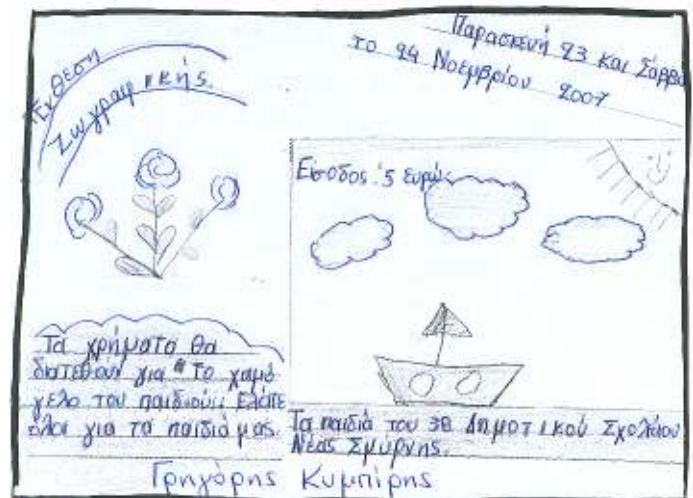 Έκθεση
Ζωγραφικής.
Παρασκευή 23 και Σάββα
το 24 Νοεμβρίου 2007
Είσοδος: 5 ευρώ
Τα χρήματα θα
διατεθούν για "Το χαμό
γελο του παιδιού,, Ελάτε
όλοι για τα παιδιά μας.
Τα παιδιά του 3ου Δημοτικού Σχολείου
Νέας Σμύρνης.
Γρηγόρης Κυμπίρης